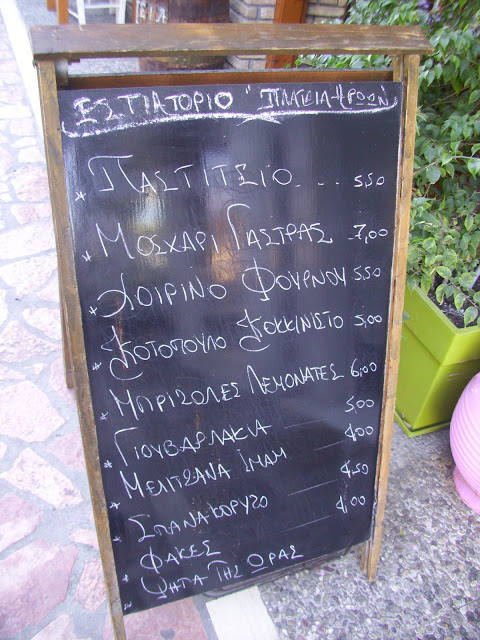 ΕΣΤΙΑΤΟΡΙΟ "ΠΛΑΤΕΙΑ ΗΡΩΩΝ
* ΠΑΣΤΙΤΣΙΟ.... 5,50
* ΜΟΣΧΑΡΙ ΓΑΣΤΡΑΣ 7,00
* ΧΟΙΡΙΝΟ ΦΟΥΡΝΟΥ 5,50
* ΚΟΤΟΠΟΥΛΟ ΚΟΚΚΙΝΙΣΤΟ 5,00
* ΜΠΡΙΖΟΛΕΣ ΛΕΜΟΝΑΤΕΣ 6,00
* ΓΙΟΥΒΑΡΛΑΚΙΑ 5,00
* ΜΕΛΙΤΖΑΝΑ ΙΜΑΜ 4,00
* ΣΠΑΝΑΚΟΡΥΖΟ 4,50
* ΦΑΚΕΣ 4,00
* ΨΗΤΑ ΤΗΣ ΩΡΑΣ